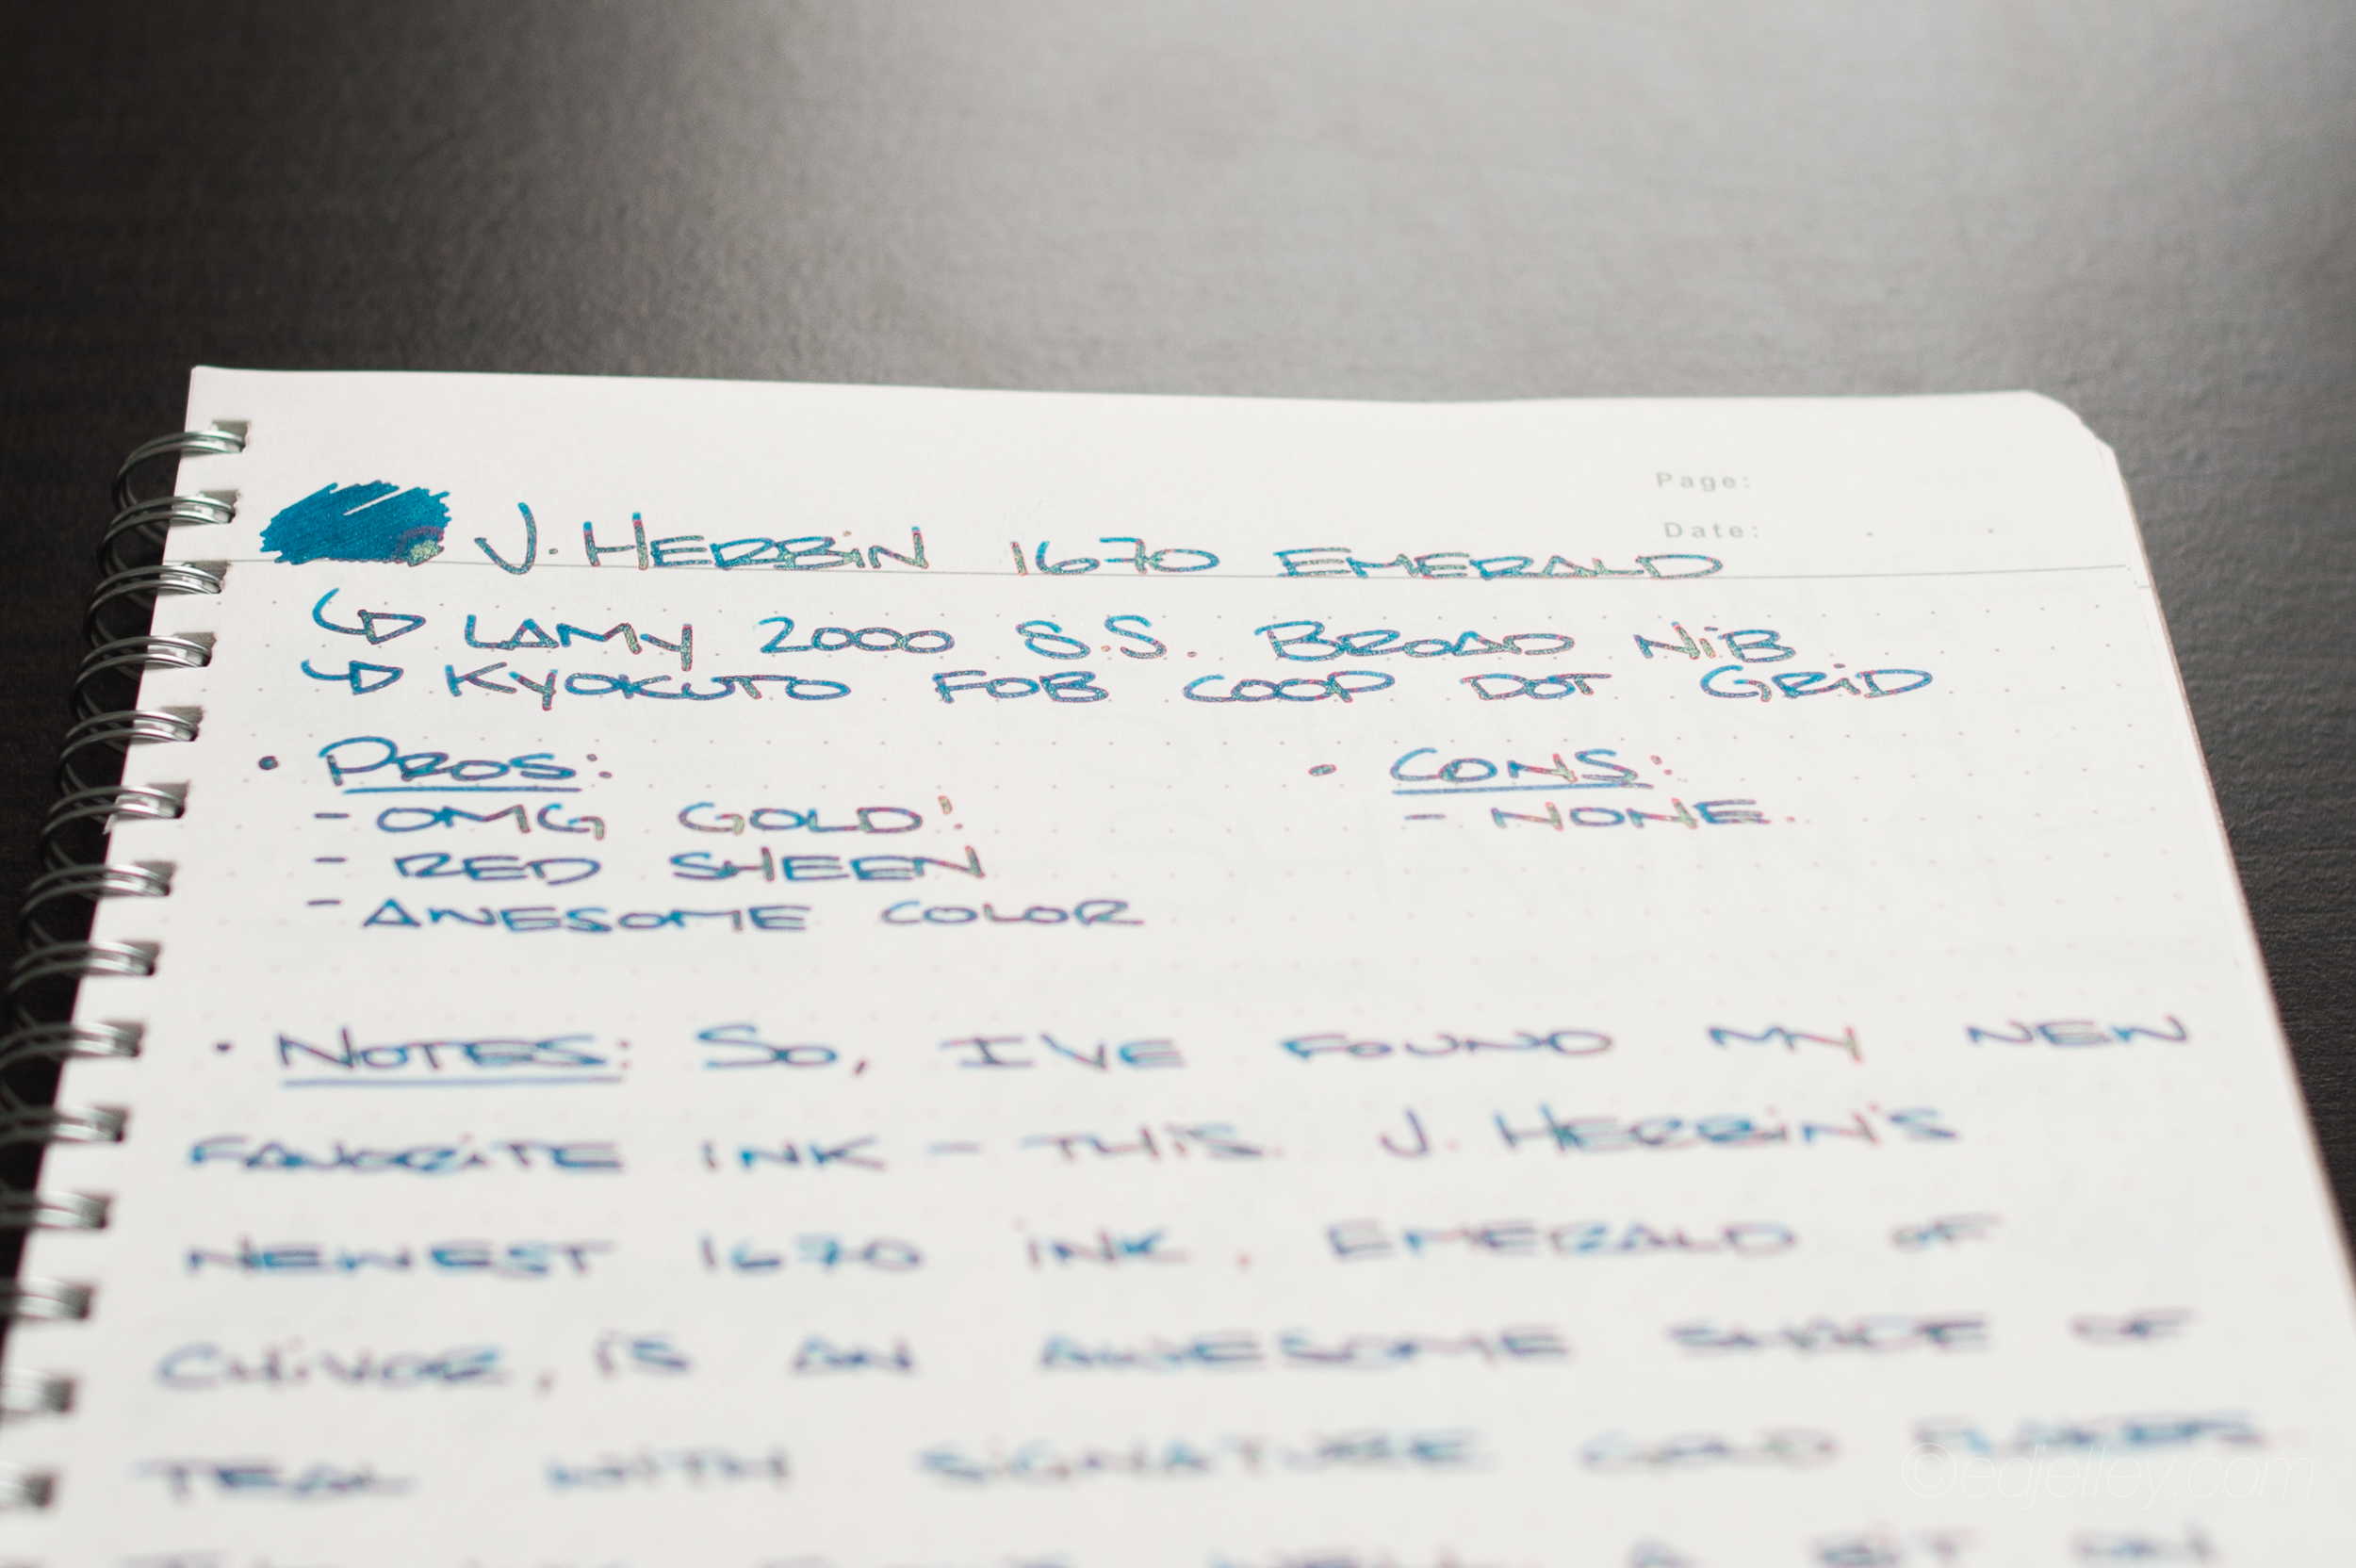 Page:
Date: . .
J. HERBiN 1670 EMERALD
↳ LAMY 2000 S.S. BROAD NiB
↳ KYOKUTO FOB COOP DOT GRiD
• PROS:
- OMG GOLD!
- RED SHEEN
- AWESOME COLOR
• CONS:
- NONE.
• NOTES: SO, I'VE FOUND MY NEW
FAVORiTE INK - THiS. J. HERBiN'S
NEWEST 1670 iNK, EMERALD OF
CHiVOR, iS AN AWESOME SHADE OF
TEAL WiTH SiGNATURE GOLD FLAKES.
©edjelley.com